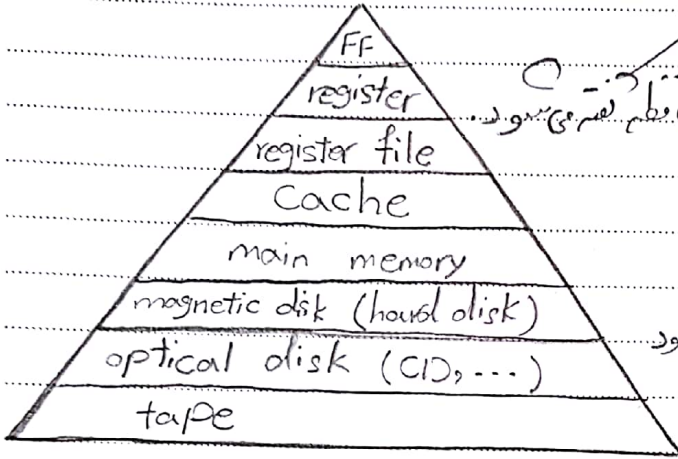 FF
register
register file
Cache
main memory
magnetic disk (hard disk)
optical disk (CD, ...)
tape